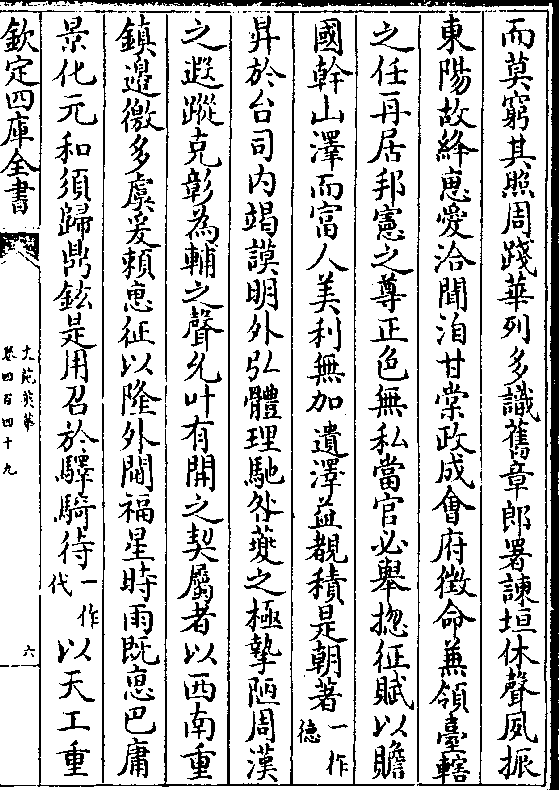 而莫窮其照周踐華列多識舊章郎署諫垣休聲夙振
東陽故絳惠愛洽聞洎甘棠政成會府徵命兼領臺轄
之任再居邦憲之尊正色無私當官必舉揔征賦以贍
國幹山澤而富人美利無加遺澤益覩積是朝著一作德
昇於台司內竭謨明外弘體理馳咎夔之極摯陋周漢
之遐蹤克彰為輔之聲允叶有開之契屬者以西南重
鎮邊徼多虞爰賴惠征以隆外閫福星時雨既惠巴庸
景化元和須歸鼎鉉是用召於驛騎待一作代以天工重
欽定四庫全書
文苑英華
卷四百四十九
六